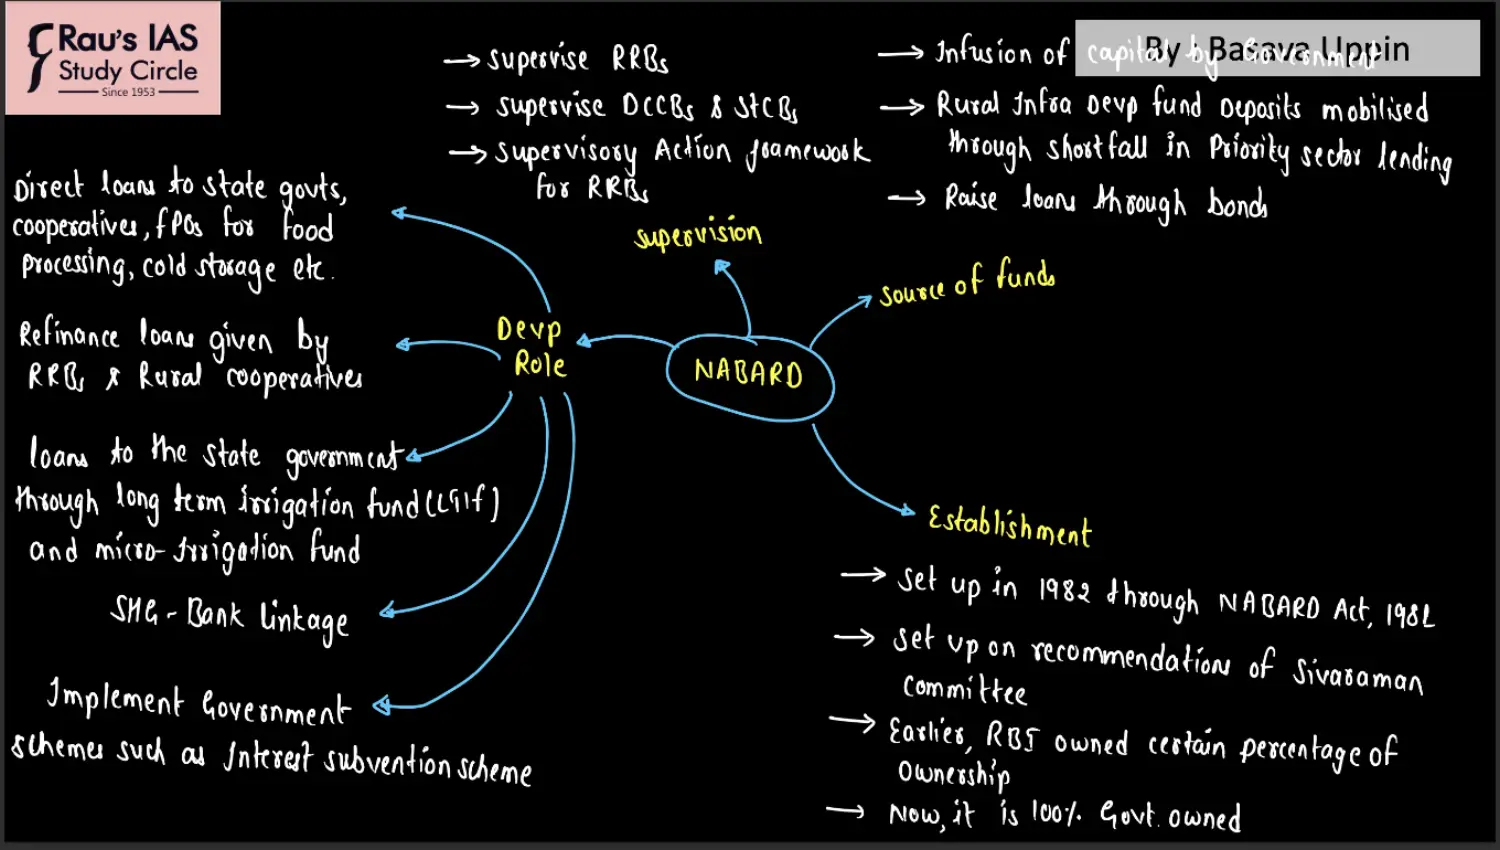 Rau's IAS
Study Circle
Since 1953
By : Basava Uppin
→ supervise RRBs
→ supervise DCCBs & StCBs
→ supervisory Action framework
for RRBs
→ Infusion of capital by Government
→ Rural Infra Devp fund Deposits mobilised
through shortfall in Priority sector lending
→ Raise loans through bonds
supervision
source of funds
Direct loans to state govts,
cooperatives, FPOs for food
processing, cold storage etc.
Devp
Role
NABARD
Refinance loans given by
RRBs & Rural cooperatives
loans to the state government
through long term irrigation fund (LTIF)
and micro-Irrigation fund
SHG - Bank linkage
Implement Government
schemes such as Interest subvention scheme
Establishment
→ set up in 1982 through NABARD Act, 1981
→ set up on recommendations of Sivaraman
committee
→ Earlier, RBI owned certain percentage of
ownership
→ Now, it is 100% Govt. owned